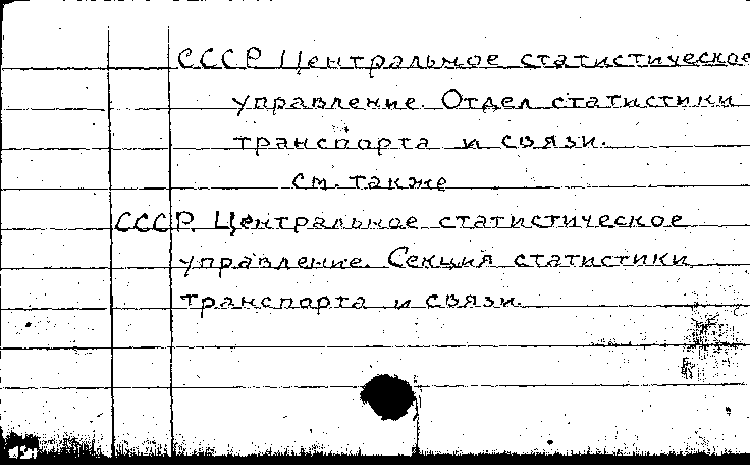 СССР. Центральное статистическое
управление. Отдел статистики
транспорта и связи.
см. также
СССР. Центральное статистическое
управление. Секция статистики
транспорта и связи.